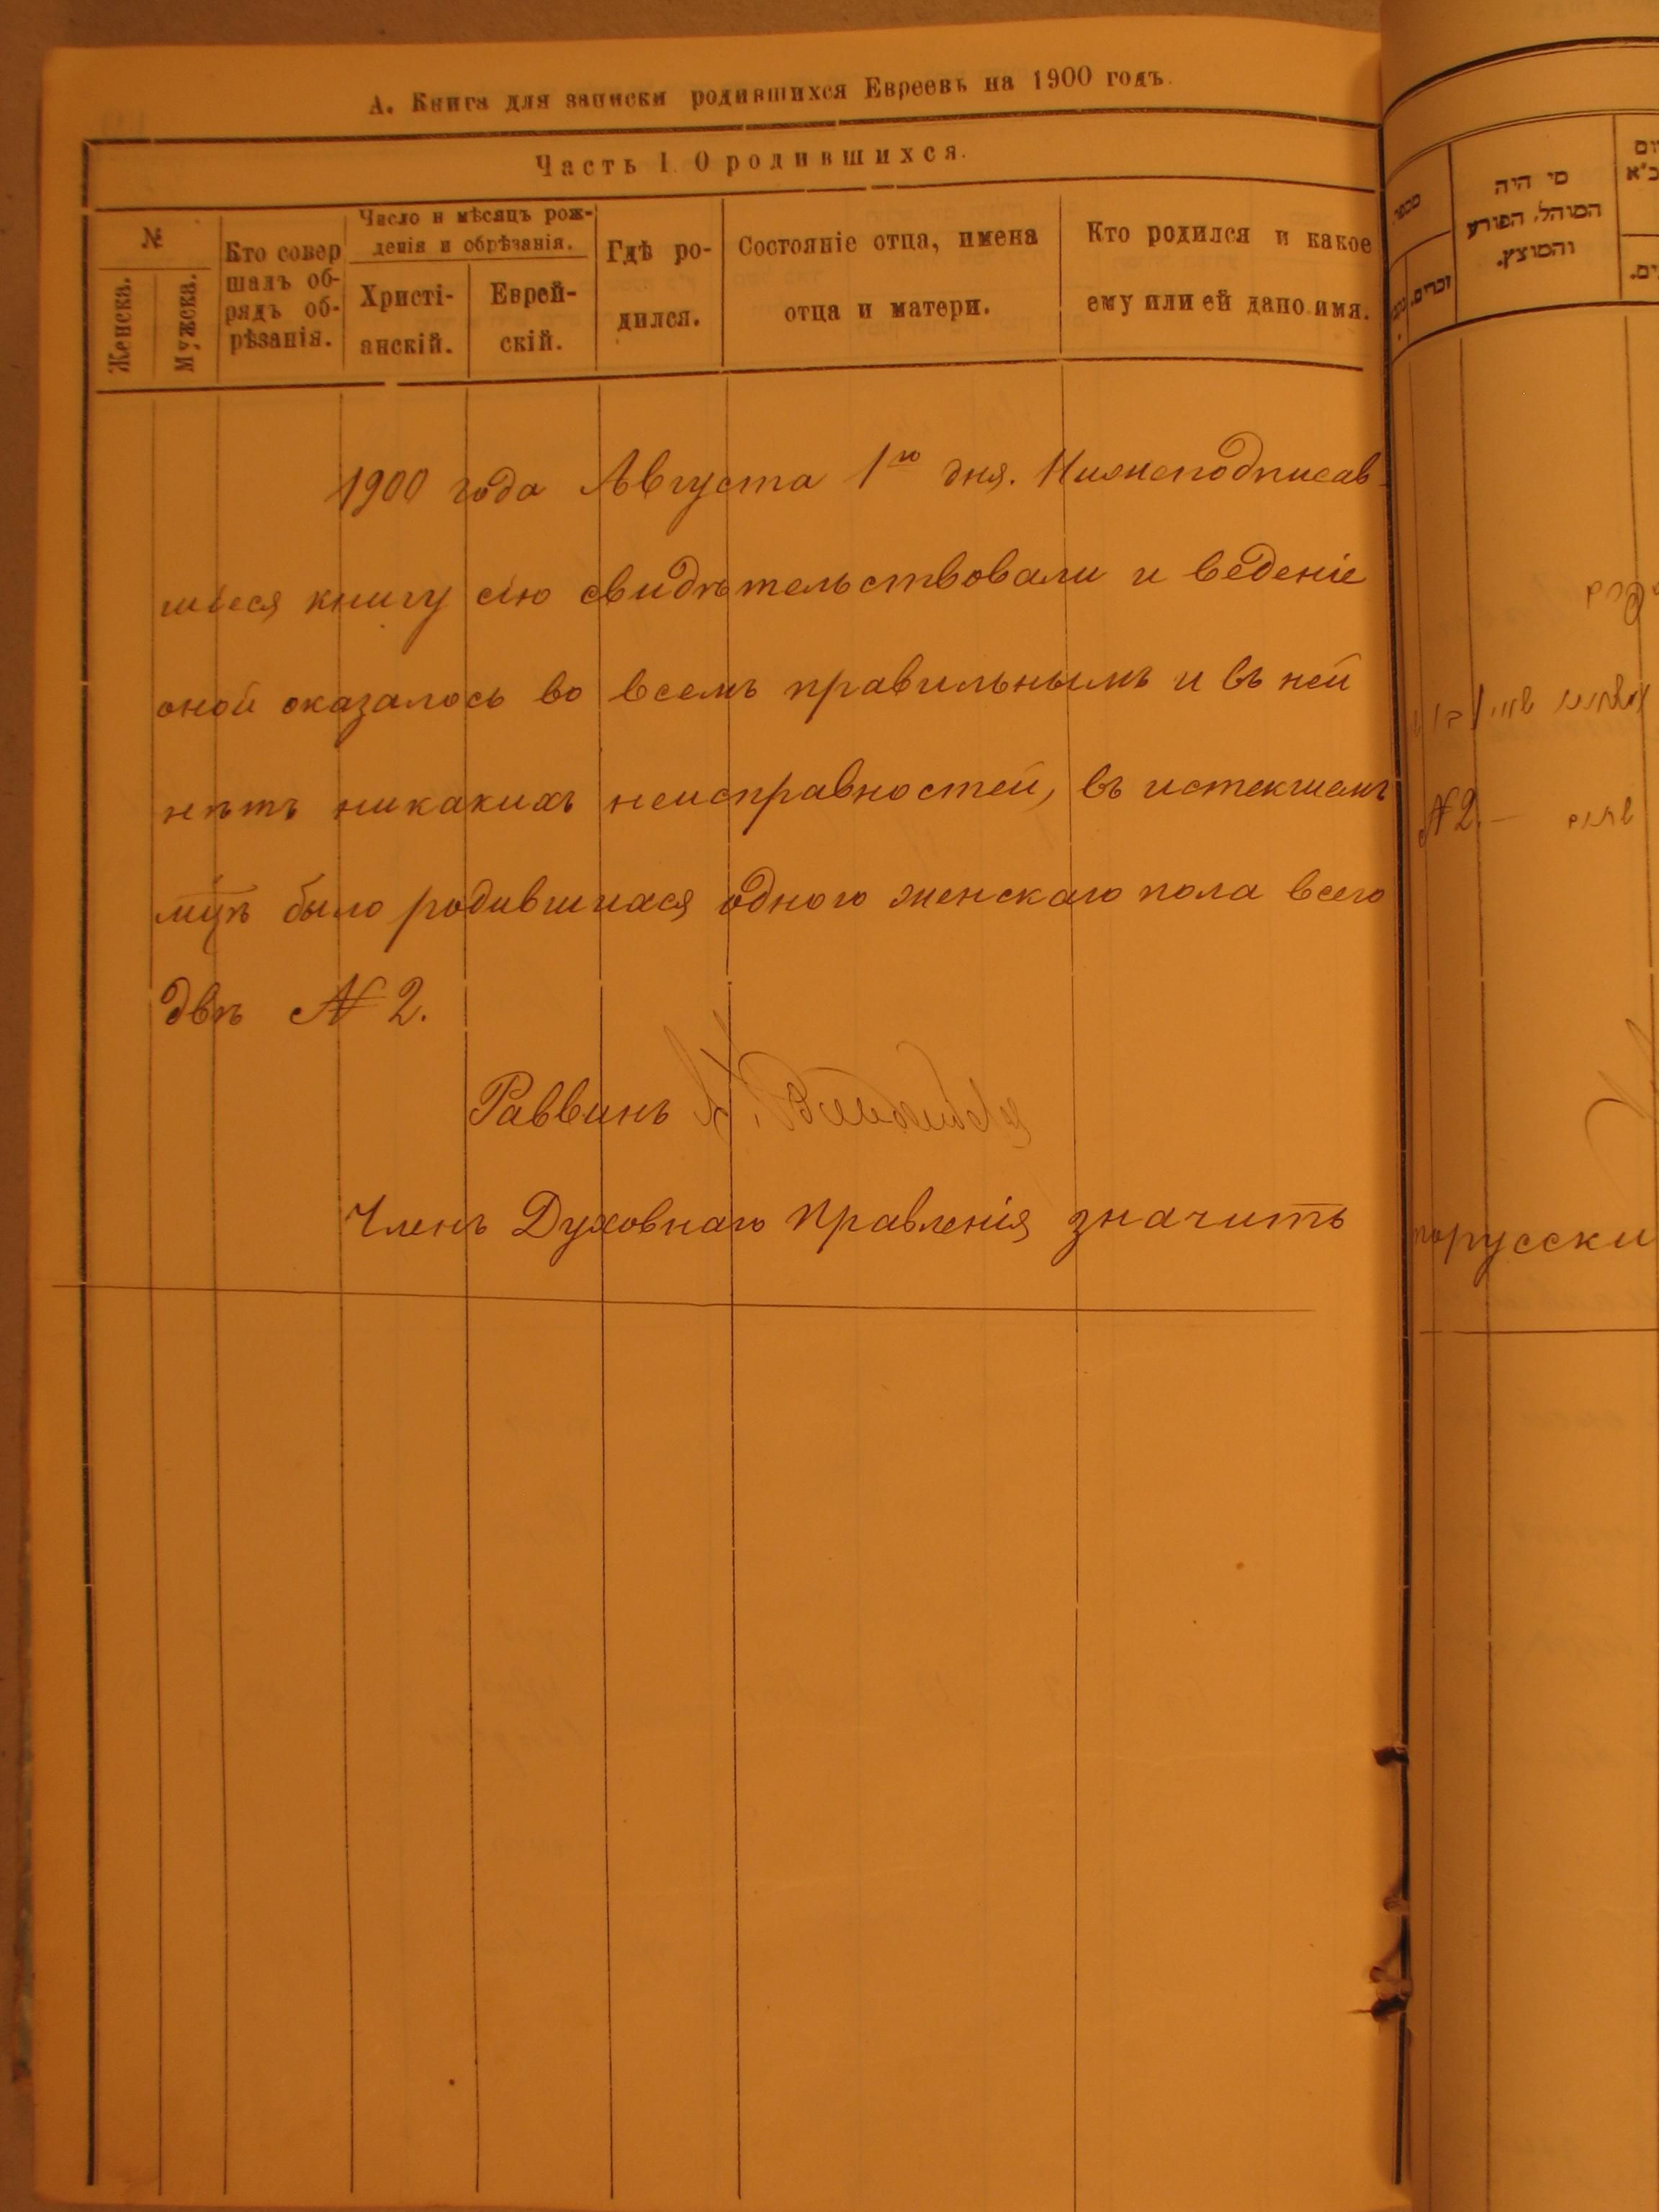 А. Книга для записки родившихся Евреевъ на 1900 годъ.
Часть I. О родившихся.
№
Женска.
Мужска.
Кто совер
шалъ об-
рядъ об-
рѣзанія.
Число и мѣсяцъ рож-
денія и обрѣзанія.
Христі-
анскій.
Еврей-
скій.
Гдѣ ро-
дился.
Состояніе отца, имена
отца и матери.
Кто родился и какое
ему или ей дано имя.
1900 года Августа 1го дня. Нижеподписав-
шіеся книгу сію свидѣтельствовали и веденіе
оной оказалось во всемъ правильнымъ и въ ней
нѣтъ никакихъ неисправностей, въ истекшемъ
было родившихся одного женскаго пола всего
двѣ № 2.
Раввинъ
Членъ Духовнаго Правленія значитъ
מספר
זכרים.
מי היה
המוהל, הפורע
והמוצץ.
№ 2.
порусски